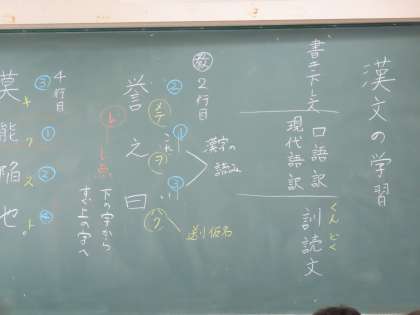 漢文の学習
書き下し文
口語訳
現代語訳
訓読文
くんどく
教 2行目
漢字の
読み
② ① ③
誉 之 曰
メテ これ ヲ い ハク
レ
レ点
下の字から
すぐ上の字へ
送り仮名
4行目
③ ① ② ④
莫 能 陥 也
キ ク ス ト